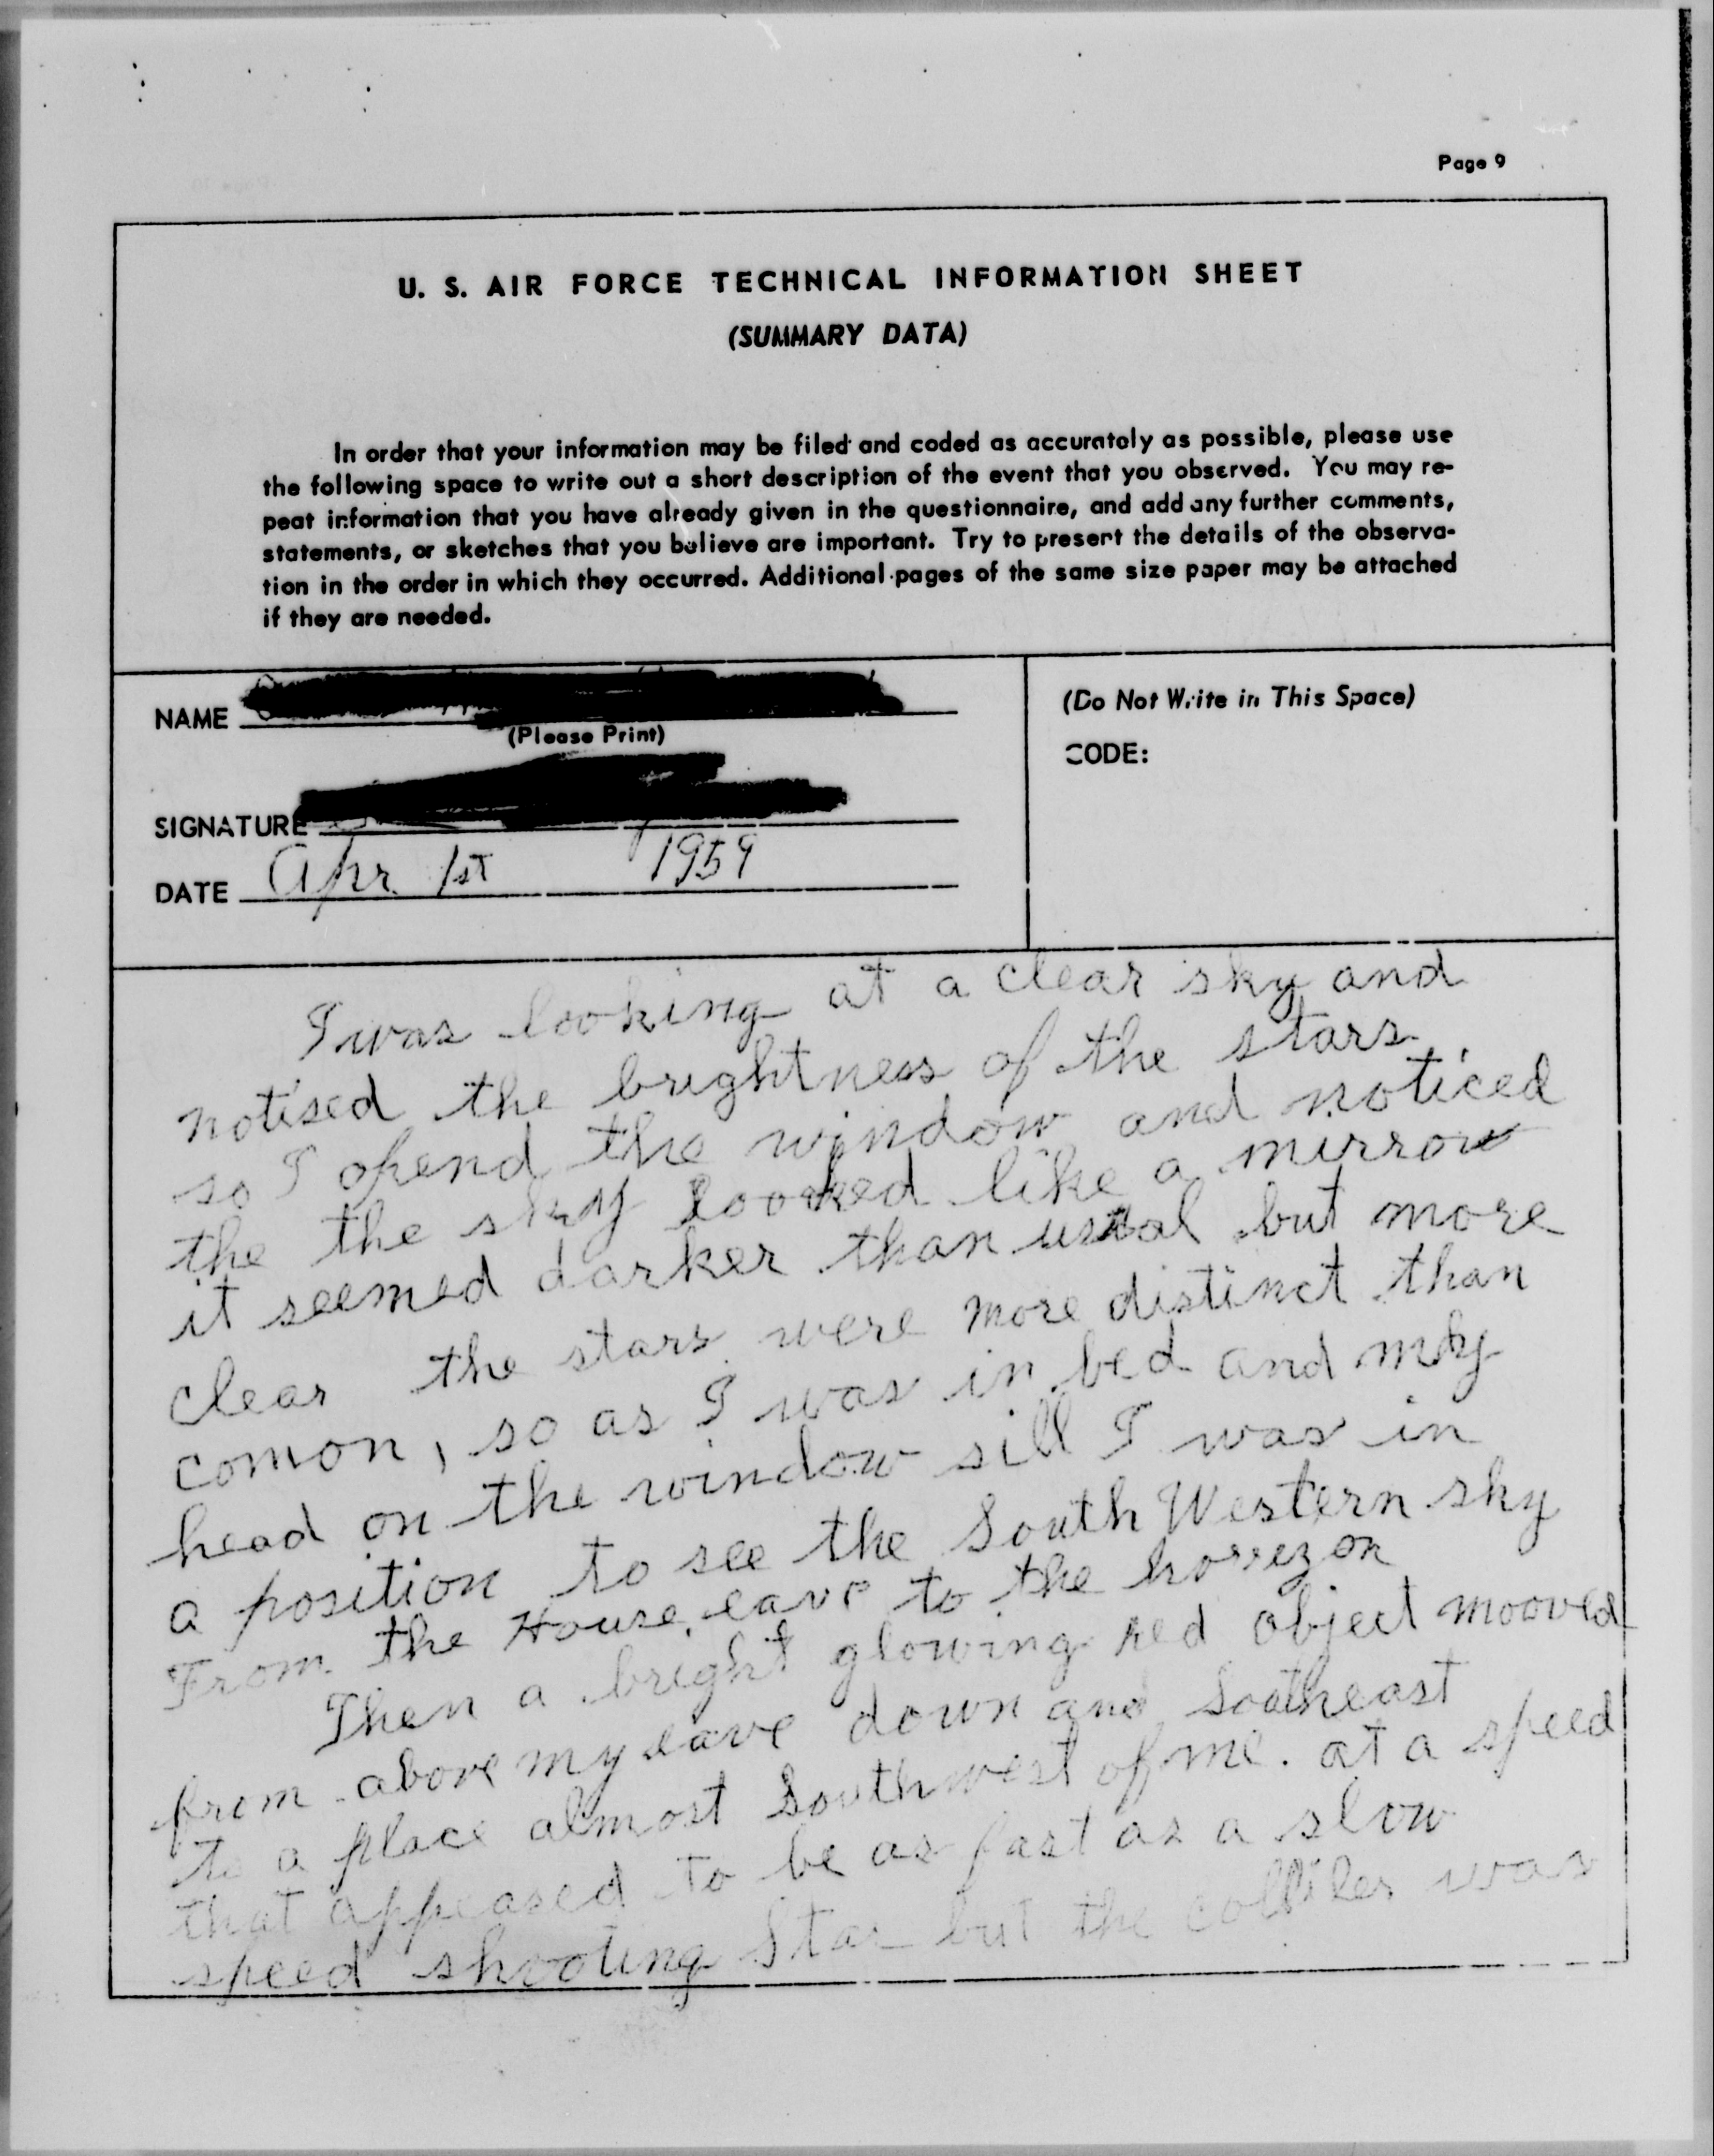 Page 9
U. S. AIR FORCE TECHNICAL INFORMATION SHEET
(SUMMARY DATA)
In order that your information may be filed and coded as accurately as possible, please use
the following space to write out a short description of the event that you observed. You may re-
peat information that you have already given in the questionnaire, and add any further comments,
statements, or sketches that you believe are important. Try to present the details of the observa-
tion in the order in which they occurred. Additional pages of the same size paper may be attached
if they are needed.
NAME
(Please Print)
SIGNATURE
DATE Apr. 1st 1959
(Do Not Write in This Space)
CODE:
I was looking at a clear sky and
notised the brightness of the stars.
so I opend the window and noticed
the the sky looked like a mirrow
it seemed darker than usual but more
clear the stars were more distinct than
comon, so as I was in bed and my
head on the window sill I was in
a position to see the South Western sky
From the House eave to the horrezon
Then a bright glowing red object mooved
from above my eave down and Southeast
to a place almost Southwest of me. at a speed
that appeared to be as fast as a slow
speed shooting Star but the was